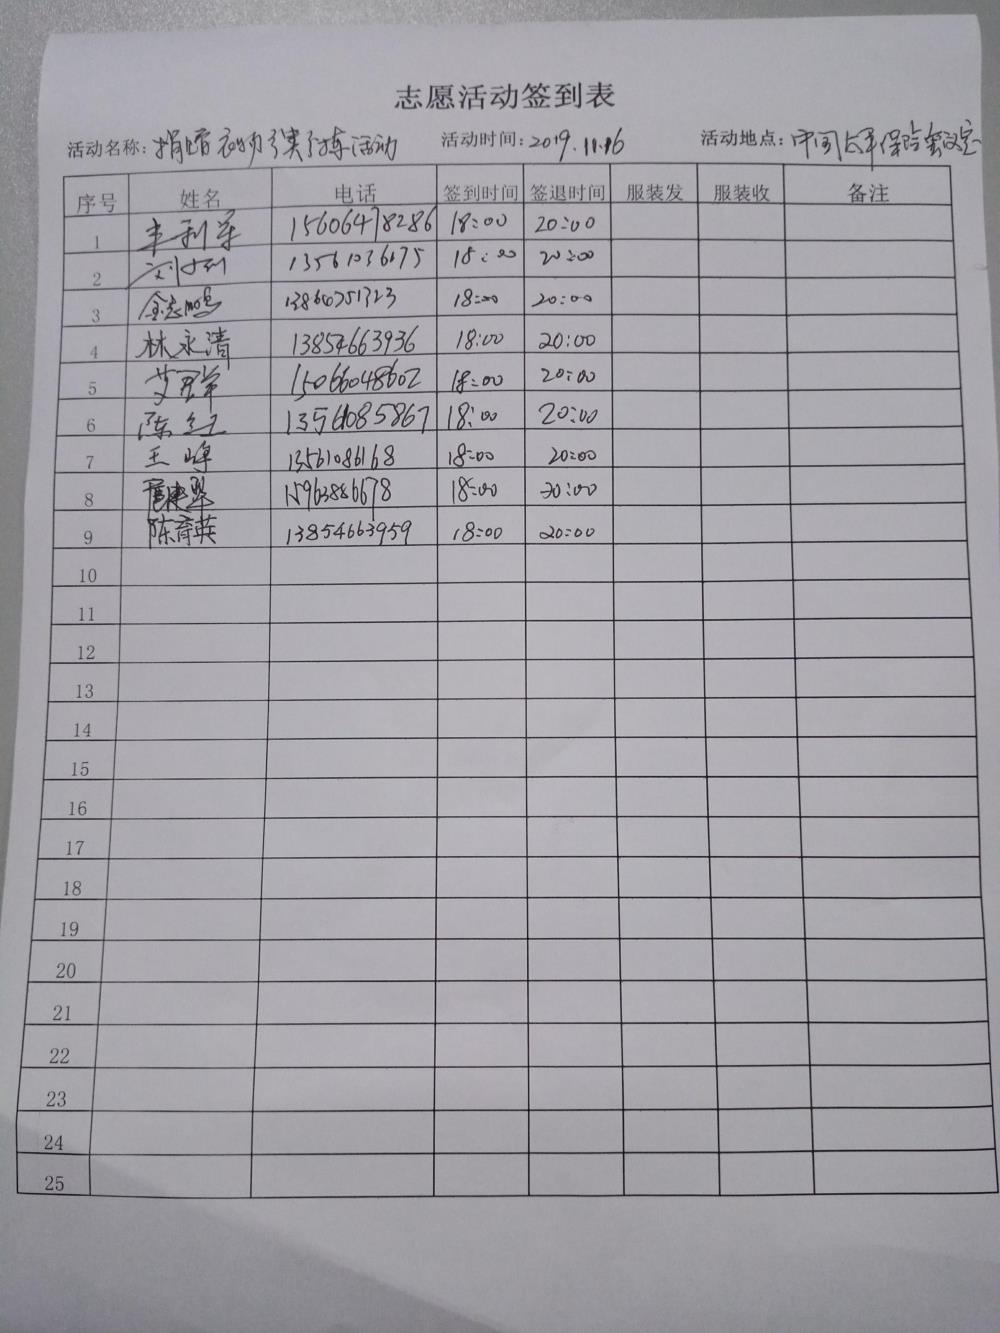 志愿活动签到表
活动名称: 捐赠衣物 活动 活动时间: 2019.11.16 活动地点: 中国太平保险会议室
序号 姓名 电话 签到时间 签退时间 服装发 服装收 备注
1 15606478286 18:00 20:00
2 13561036175 18:00 20:00
3 金志鹏 18:00 20:00
4 林永清 13854663936 18:00 20:00
5 15066048602 18:00 20:00
6 陈红 18:00 20:00
7 王峰 13561086168 18:00 20:00
8 15963886678 18:00 20:00
9 陈育英 13854663959 18:00 20:00
10
11
12
13
14
15
16
17
18
19
20
21
22
23
24
25